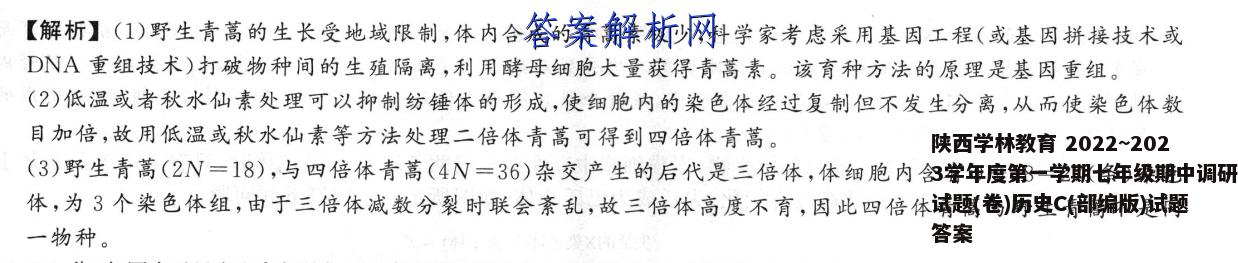 【解析】(1)野生青蒿的生长受地域限制,体内合成的青蒿素较少,科学家考虑采用基因工程(或基因拼接技术或
答案解析网
DNA 重组技术)打破物种间的生殖隔离,利用酵母细胞大量获得青蒿素。该育种方法的原理是基因重组。
(2)低温或者秋水仙素处理可以抑制纺锤体的形成,使细胞内的染色体经过复制但不发生分离,从而使染色体数
目加倍,故用低温或秋水仙素等方法处理二倍体青蒿可得到四倍体青蒿。
(3)野生青蒿(2N=18),与四倍体青蒿(4N=36)杂交产生的后代是三倍体,体细胞内含
体,为 3 个染色体组,由于三倍体减数分裂时联会紊乱,故三倍体高度不育,因此四倍体
一物种。
陕西学林教育 2022~202
3学年度第一学期七年级期中调研
试题(卷)历史C(部编版)试题
答案